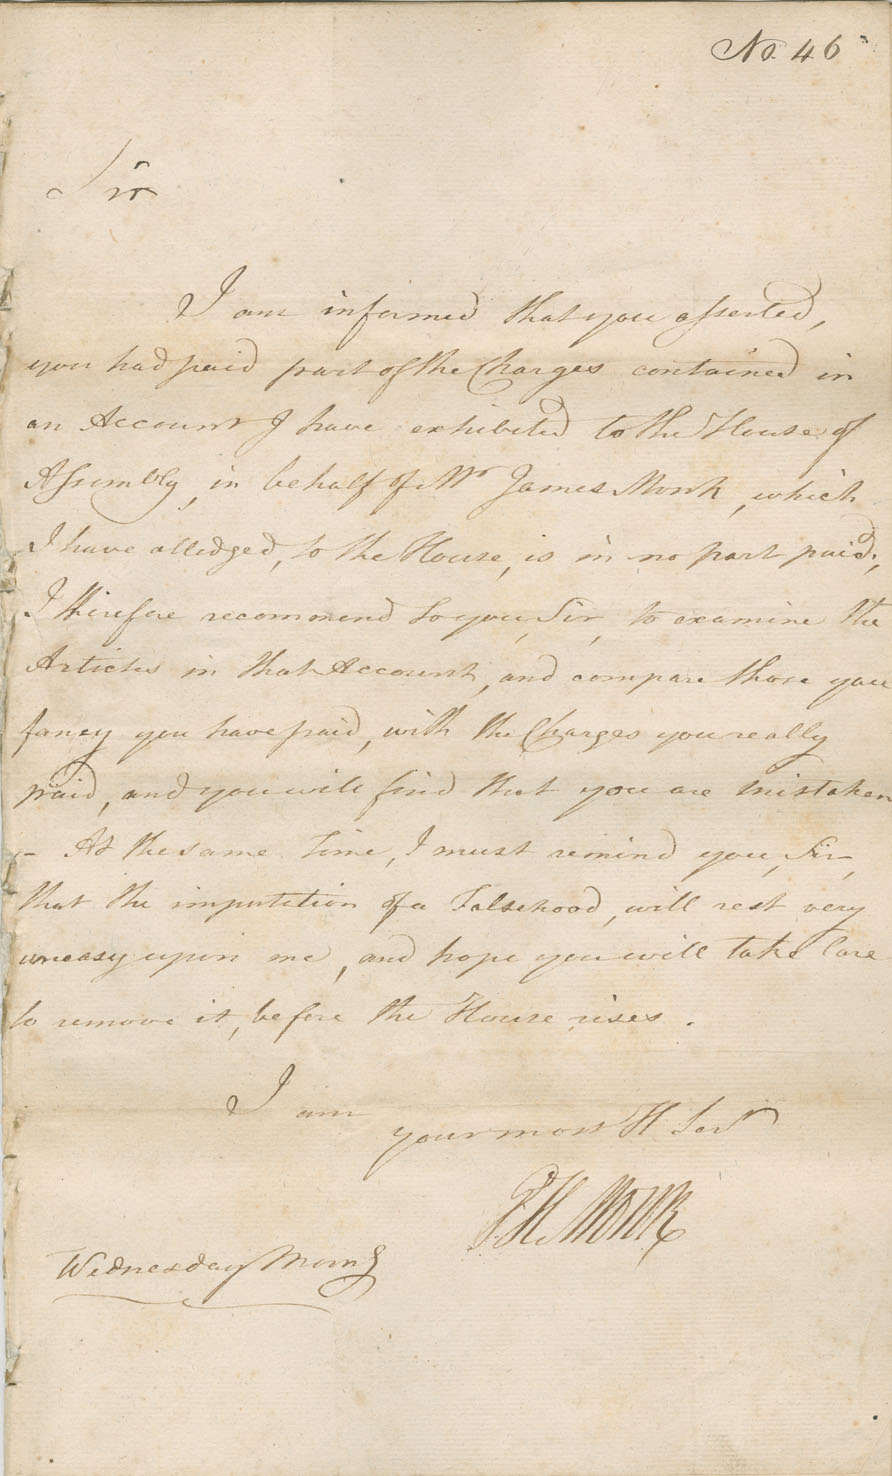 No. 46
Sir
I am informed that you asserted,
you had paid part of the Charges contained in
an Account I have exhibited to the House of
Assembly, in behalf of Mr James Monk, which
I have alledged, to the House, is in no part paid;
I therefore recommend to you, Sir, to examine the
Articles in that Account, and compare those you
fancy you have paid, with the Charges you really
paid, and you will find that you are mistaken
- At the same time, I must remind you, Sir,
that the imputation of a Falsehood, will rest very
uneasy upon me, and hope you will take Care
to remove it, before the House rises.
I am
your most H Servt
G.H. Monk
Wednesday Morng